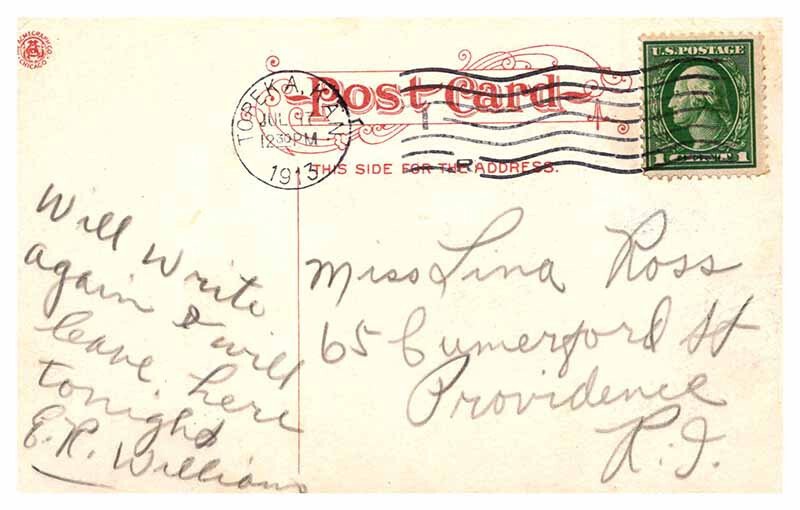 ACMEGRAPH CO.
CHICAGO
Post Card
THIS SIDE FOR THE ADDRESS.
TOPEKA, KAN.
JUL 17
12 30 PM
1913
1
R
U.S. POSTAGE
1 CENT 1
Will Write
again & will
leave here
tonight
E. R. Williams
Miss Lina Ross
65 Cumerford St
Providence
R. I.